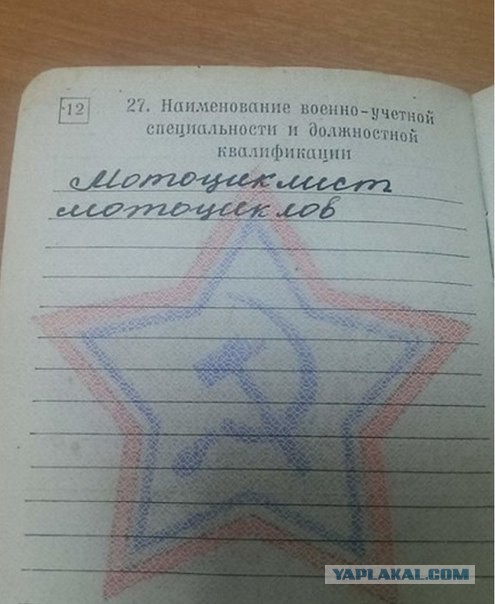 12
27. Наименование военно-учетной
специальности и должностной
квалификации
Мотоциклист
мотоциклов
YAPLAKAL.COM